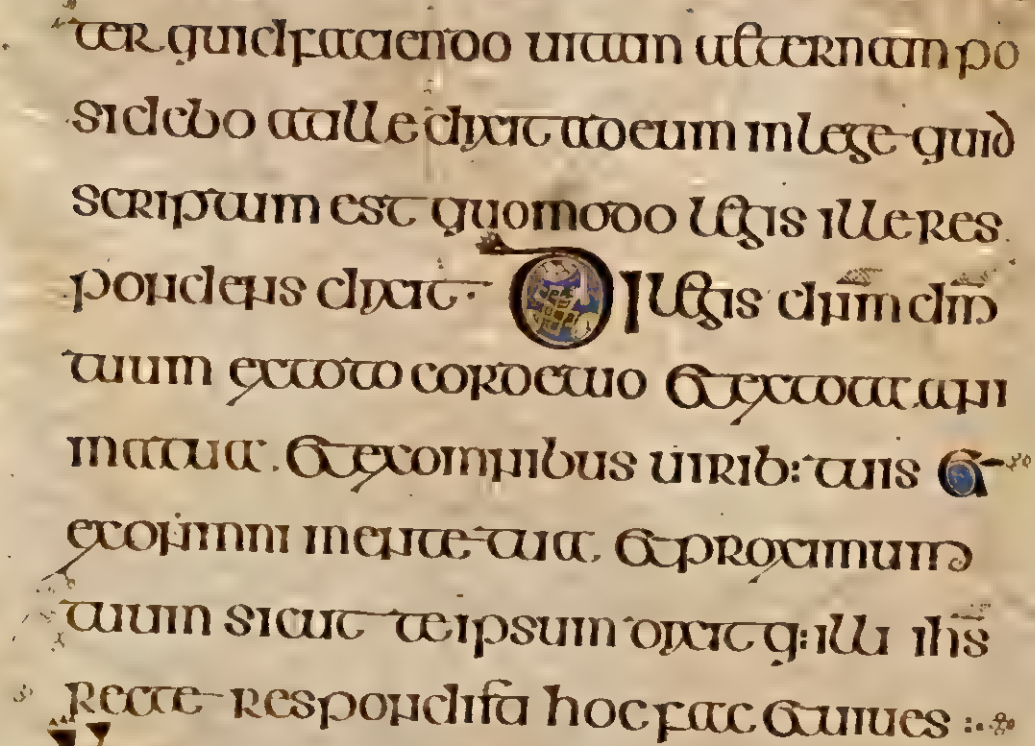 ter quid faciendo uitam aeternam po
sidebo at ille dixit ad eum in lege quid
scriptum est quomodo legis ille res
pondens dixit · Dilegis dn̄m dm̄
tuum ex toto corde tuo et ex tota ani
ma tua . et ex omnibus uirib: tuis et
ex omni mente tua , et proximum
tuum sicut te ipsum dixitq: illi ihs̄
Recte respondisti hoc fac et uiues :